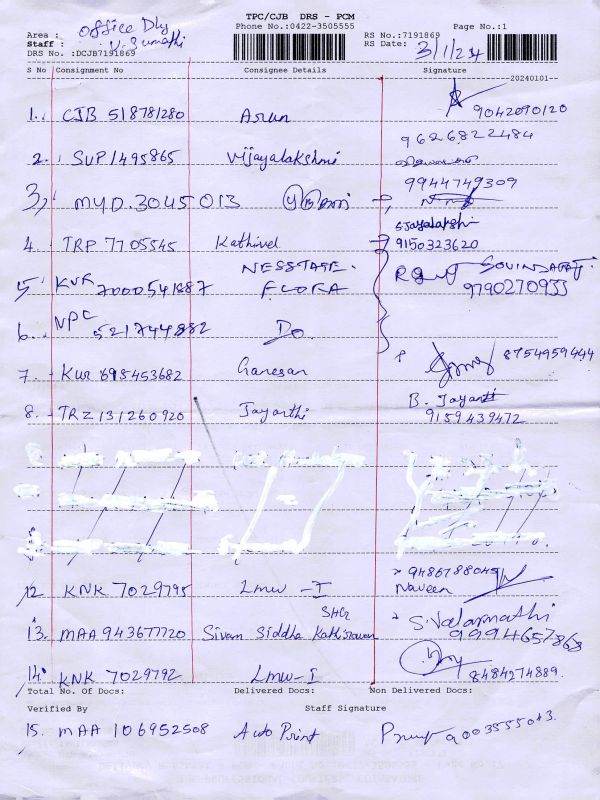 TPC/CJB DRS - PCM
Phone No.:0422-3505555 Page No.:1
Area : office Dly
Staff : V. Sumathi
RS No.:7191869
RS Date: 3/1/24
DRS No. :DCJB7191869
S No Consignment No Consignee Details Signature
20240101
1. CJB 518781280 Arun 9042090120
9626822484
2. SVP 1495865 Vijayalakshmi
9944749309
3, MYD.3045013
S Jayalakshi
4. TRP 7705545 Kathirvel 9150323620
5 KVR 7000541887 NESSTATE. FLORA GOVINDARAJ
9790270955
6. NPC 521744882 Do
7. KUR 695453682 Ganesan 8754959644
8. TRZ 131260920 Jayanthi B. Jayanti
9159439472
12 KNK 7029795 Lmw -I 9486788049
Naveen
13. MAA 943677720 Sivam Siddha S. Valarmathi
9994657868
14. KNK 7029792 Lmw-I 8484274889.
Total No. Of Docs: Delivered Docs: Non Delivered Docs:
Verified By Staff Signature
15. MAA 106952508 Auto Print 9003555043.